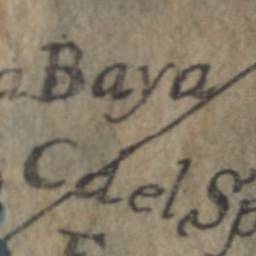 a Baya
C del Sp
F